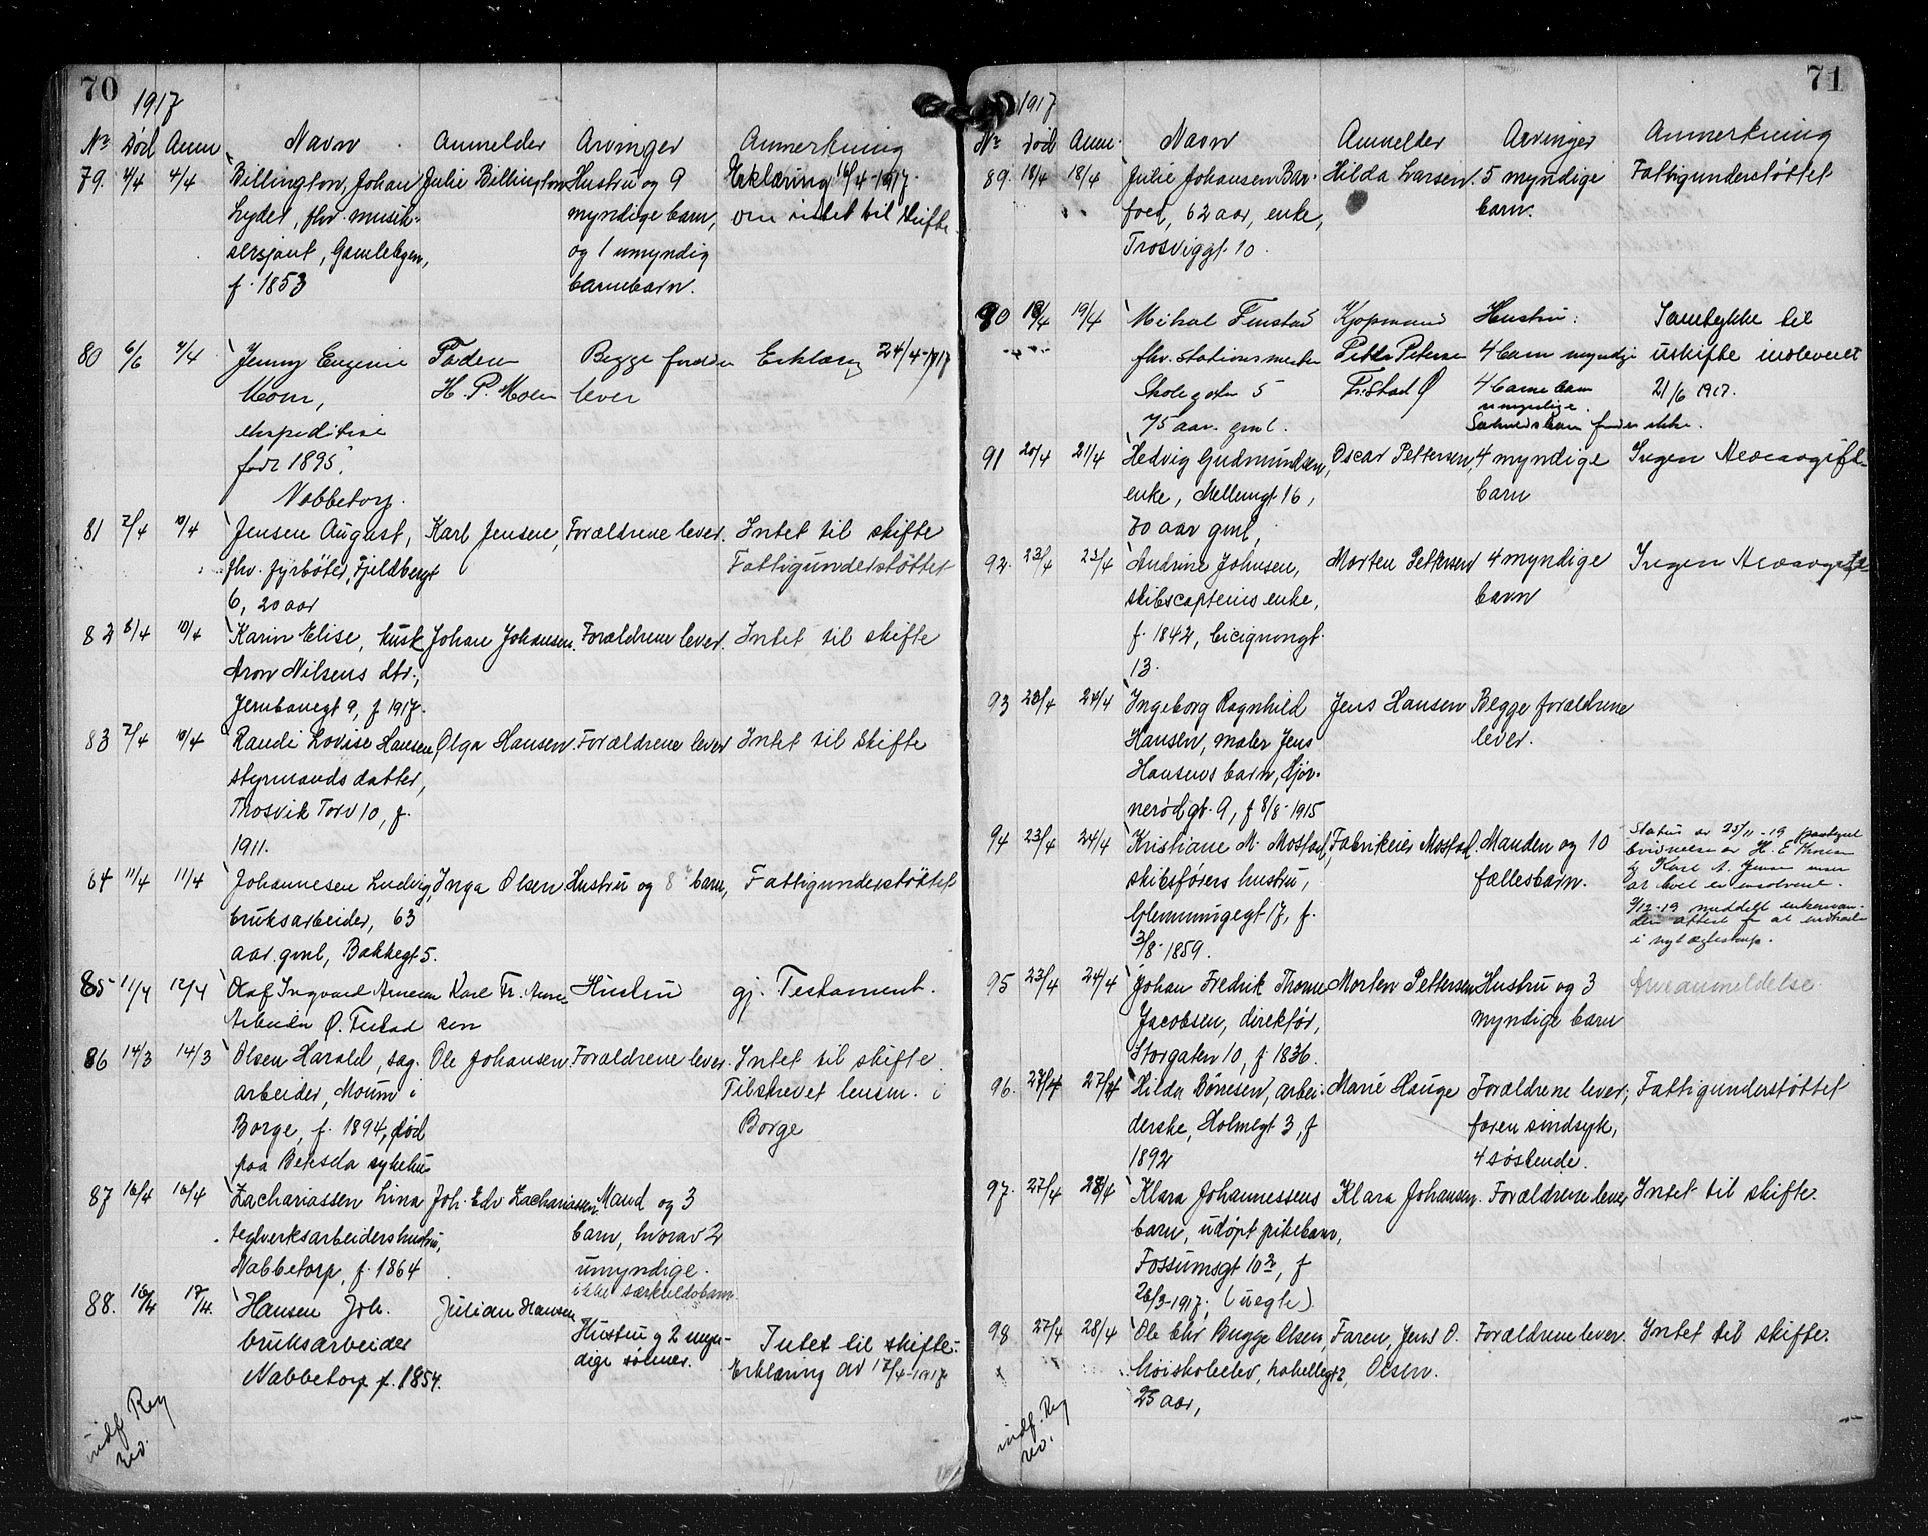 70
1917
Nr Død Anm Navn Anmelder Arvinger Anmerkning
79. 4/4 4/4 Billington, Johan Julie Billington Hustru og 9 Erklæring 16/4-1917.
Lyder, fhv. musik- myndige barn, om intet til skifte.
sersjant, Gamlebyen, og 1 umyndig
f. 1853 barnebarn.
80 6/6 7/4 Jenny Eugenie Faderen Begge foræ Erklæring 24/4-1917
Moen, H. P. Moen lever
ekspeditrise
født 1895,
Nabbetorp.
81 7/4 10/4 Jensen August, Karl Jensen, Forældrene lever. Intet til skifte
fhv. fyrbøter, Fjeldbergt Fattigunderstøttet
6, 20 aar
82 8/4 10/4 Karin Elise, husk Johan Johansen. Forældrene lever. Intet til skifte
Aron Nilsens dtr.,
Jernbanegt 9, f 1917.
83 7/4 10/4 Randi Lovise Hansen Olga Hansen. Forældrene lever Intet til skifte
styrmands datter,
Trosvik Torv 10, f.
1911.
84 11/4 11/4 Johannesen Ludvig, Inga Olsen Hustru og 8 barn, Fattigunderstøttet
bruksarbeider, 63
aar gml, Bakkegt 5.
85 11/4 12/4 Olaf Ingvard Arnesen Karl Fr. Arne- Hustru gj. Testament.
Arbeider Ø. Fr.stad sen
86 14/3 14/3 Olsen Harald, sag- Ole Johansen. Forældrene lever. Intet til skifte.
arbeider, Moum i Tilskrevet lensm. i
Borge, f. 1894, død Borge
paa Betesda sykehus
87 16/4 16/4 Zachariassen Lina Joh. Edv Zachariassen. Mand og 3
teglverksarbeidershustru, barn, hvorav 2
Nabbetorp, f. 1864 umyndige.
ikke særkuldsbarn.
88. 16/4 17/4. Hansen Joh. Julian Hansen Hustru og 2 myn-
bruksarbeider dige sønner. Intet til skifte.
Nabbetorp f. 1854. Erklæring av 17/4-1917
indf. Reg
71
1917
Nr Død Anm. Navn Anmelder Arvinger Anmerkning
89. 18/4 18/4 Julie Johansen Bar- Hilda Larsen. 5 myndige Fattigunderstøttet
foed, 62 aar, enke, barn.
Trosviggt. 10.
90 18/4 19/4 Mikal Finstad Kjøpmand Hustru. Samtykke til
fhv. Stationsmester Petter Petersen 4 barn myndige uskifte innleveret
Skolegaten 5 Fr.stad Ø 4 barnebarn 21/6 1917.
75 aar gml. umyndige.
Særkuldsbarn findes ikke.
91 20/4 21/4 Hedvig Gudmundsen, Oscar Pettersen, 4 myndige Ingen Arveavgift
enke, Mellumgt 16, barn
70 aar gml,
92. 23/4 23/4 Andrine Johnsen, Morten Pettersen 4 myndige Ingen Arveavgift
skibscapteins enke, barn
f. 1842, Cicignongt.
13.
93 23/4 24/4 Ingeborg Ragnhild Jens Hansen Begge forældrene
Hansen, maler Jens lever.
Hansens barn, Gjør-
nerødgt. 9, f 8/8-1915
94 23/4 24/4 Kristiane M. Mostad, Fabrikeier Mostad. Manden og 10 Status av 25/11-19
skibsførers hustru, fællesbarn. H. E. Karl A. Jensen
Glemmingegt 17, f. at boet er insolvent.
3/8-1859. 9/12-19 meddelt enkeman-
den attest for at indtræde
i nyt ægteskap.
95 23/4 24/4 Johan Fredrik Thorne Morten Pettersen Hustru og 3 Arveanmeldelse.
Jacobsen, direktør, myndige barn
Storgaten 10, f. 1836.
96. 27/4 27/4 Hilda Bönesen, arbei- Marie Hauge Forældrene lever, Fattigunderstøttet
derske, Holmegt 3, f faren sindsyk,
1892 4 søskende.
97. 27/4 28/4 Klara Johannessens Klara Johansen. Forældrene lever Intet til skifte.
barn, udøpt pikebarn,
Fossumsgt 10, f
26/3-1917, (uegte)
98 27/4 28/4 Ole Chr Bugge Olsen, Faren, Jens O. Forældrene lever. Intet til skifte.
høiskoleelev, Olsen.
25 aar,
indf. Reg